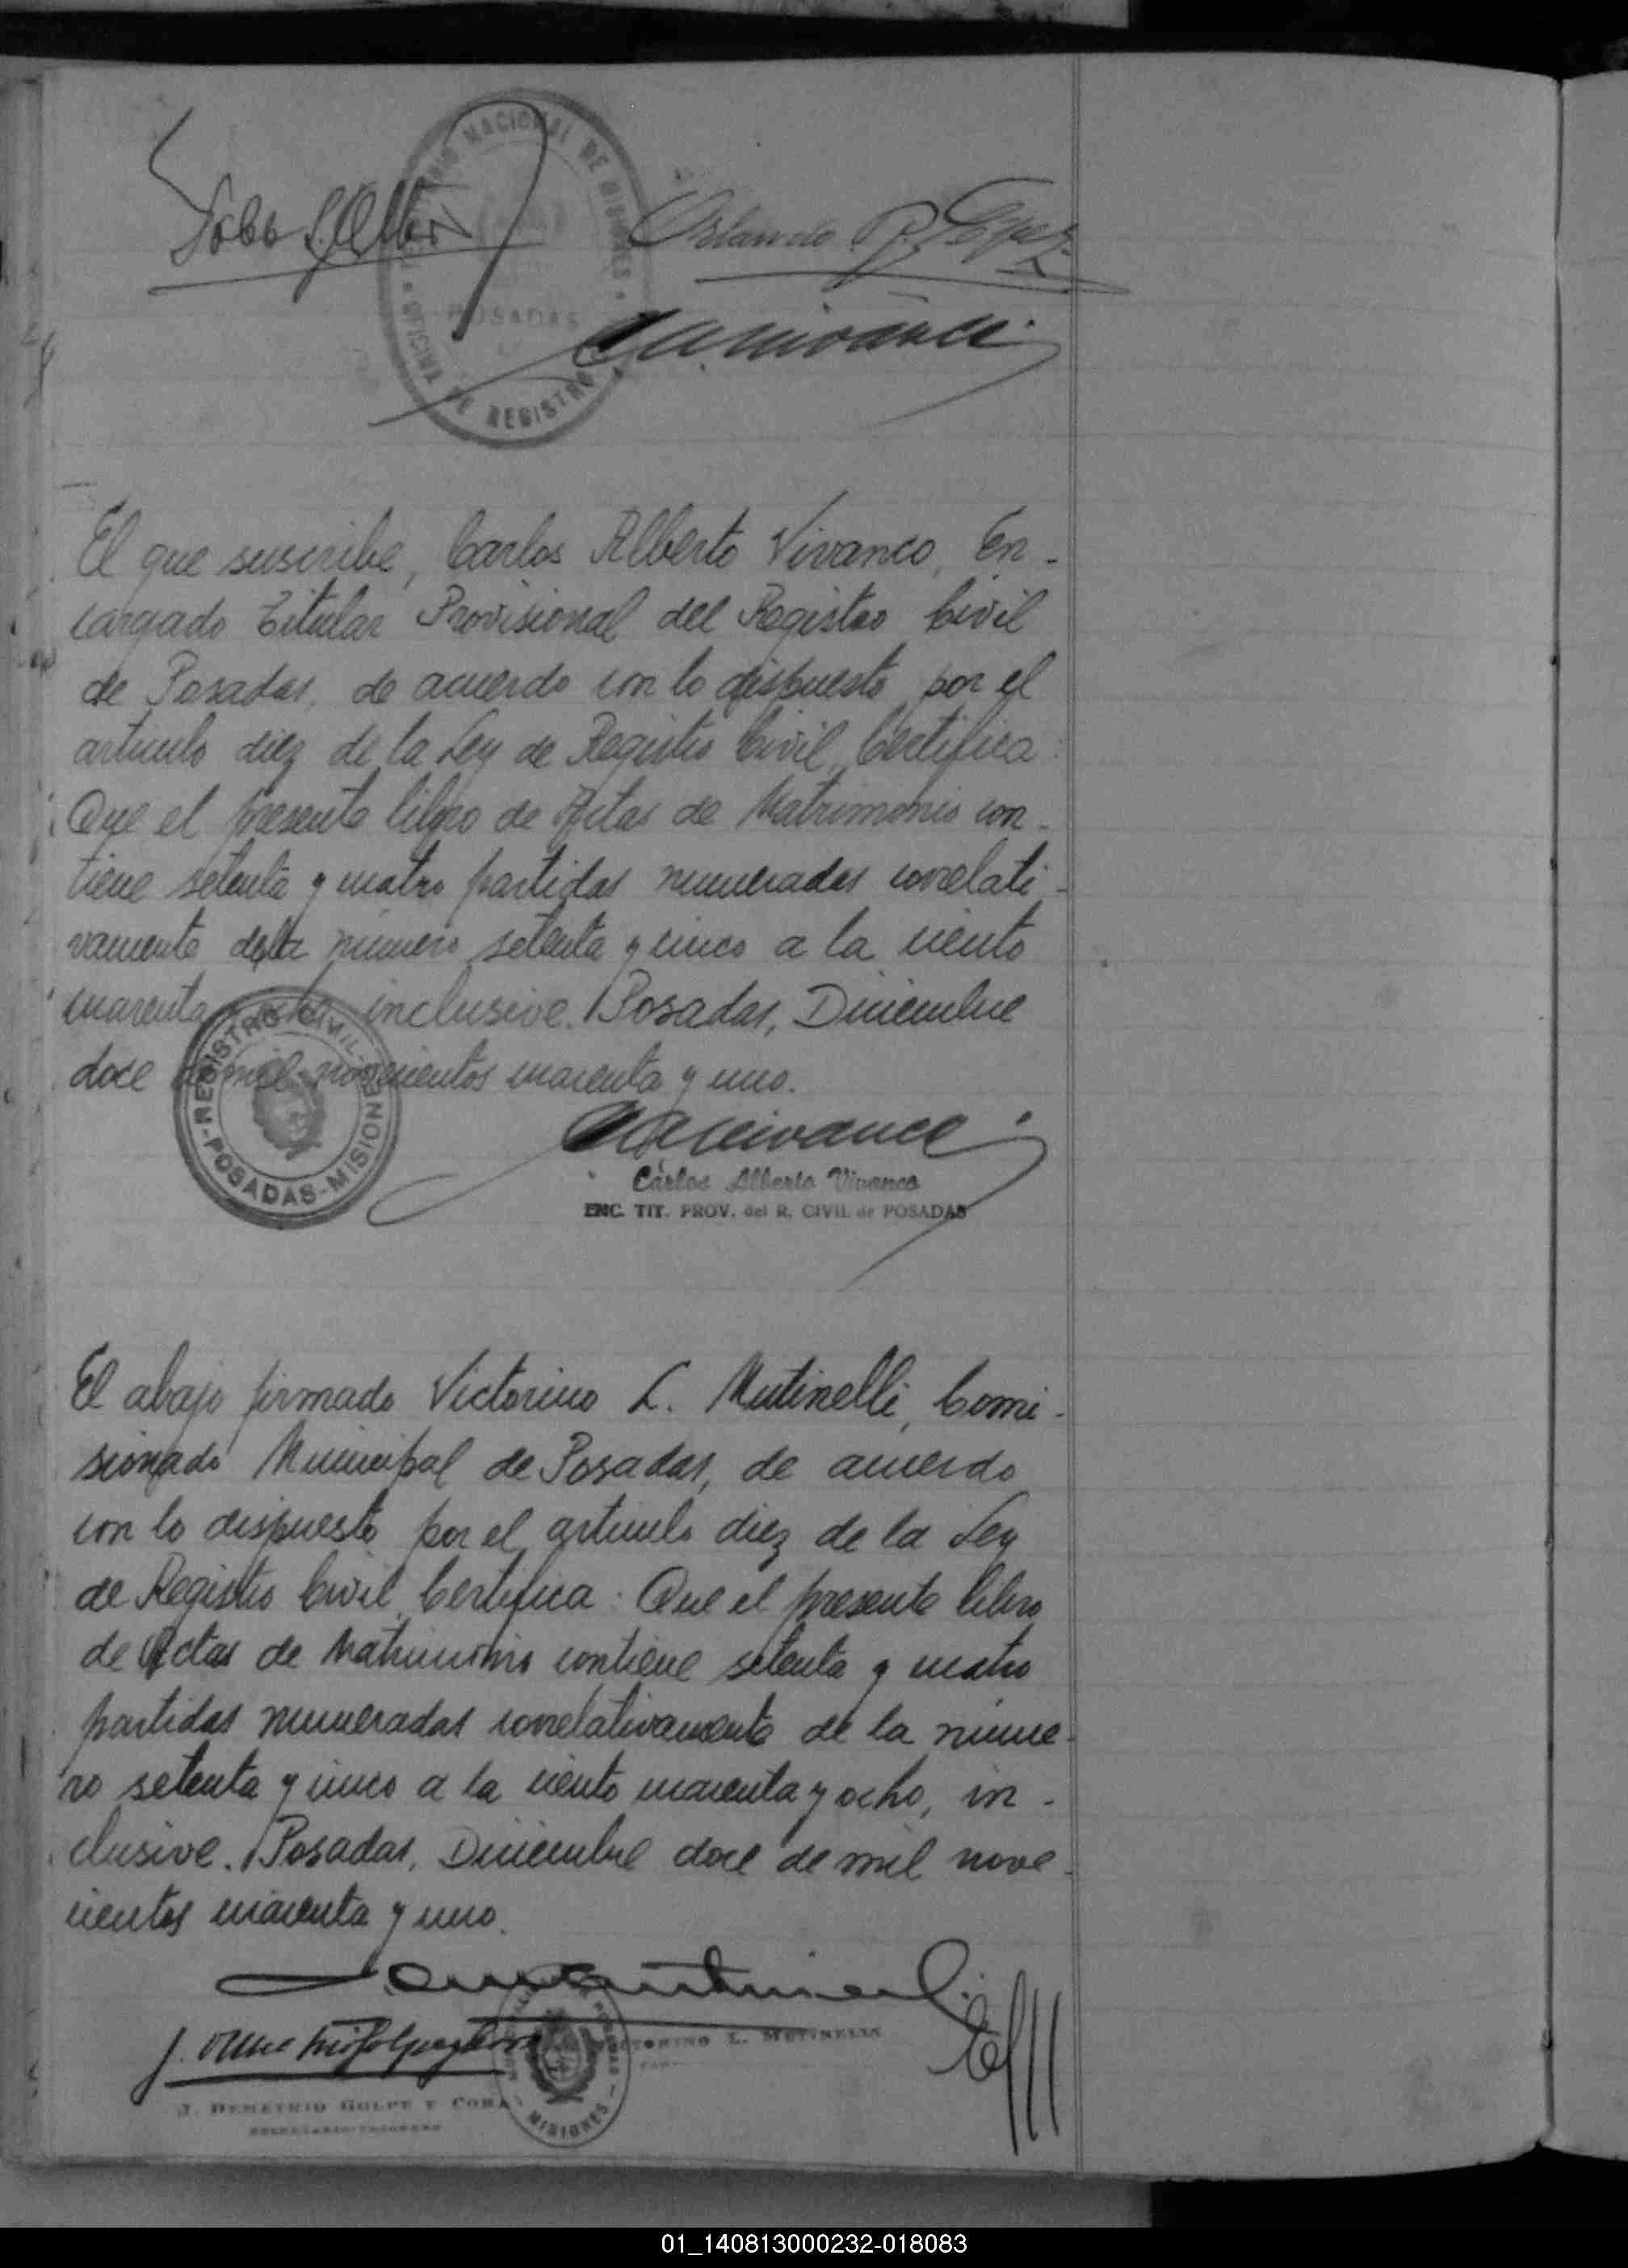 Orlando R. López
POSADAS
OFICINA DE REGISTRO
El que suscribe, Carlos Alberto Vivanco, En-
cargado Titular Provisional del Registro Civil
de Posadas, de acuerdo con lo dispuesto por el
articulo diez de la Ley de Registro Civil, Certifica:
Que el presente libro de Actas de Matrimonio con-
tiene setenta y cuatro partidas numeradas correlati-
vamente de la número setenta y cinco a la ciento
cuarenta y ocho, inclusive. Posadas, Diciembre
doce de mil novecientos cuarenta y uno.
REGISTRO CIVIL - POSADAS - MISIONES
Carlos Alberto Vivanco
ENC. TIT. PROV. del R. CIVIL de POSADAS
El abajo firmado Victorino L. Mutinelli, Comi-
sionado Municipal de Posadas, de acuerdo
con lo dispuesto por el articulo diez de la Ley
de Registro Civil, Certifica: Que el presente libro
de Actas de Matrimonio contiene setenta y cuatro
partidas numeradas correlativamente de la núme-
ro setenta y cinco a la ciento cuarenta y ocho, in-
clusive. Posadas, Diciembre doce de mil nove-
cientos cuarenta y uno.
VICTORINO L. MUTINELLI
J. DEMETRIO GOLPE Y CORA
SECRETARIO-TESORERO
MISIONES
01_140813000232-018083